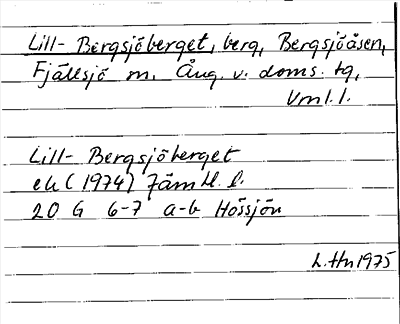 Lill- Bergsjöberget, berg, Bergsjöåsen,
Fjällsjö sn, Ång. v. doms. tg,
Vnl. l.
Lill- Bergsjöberget
ek (1974) Jämtl. l.
20 G 6-7 a-b Hössjön
L. Hn 1975